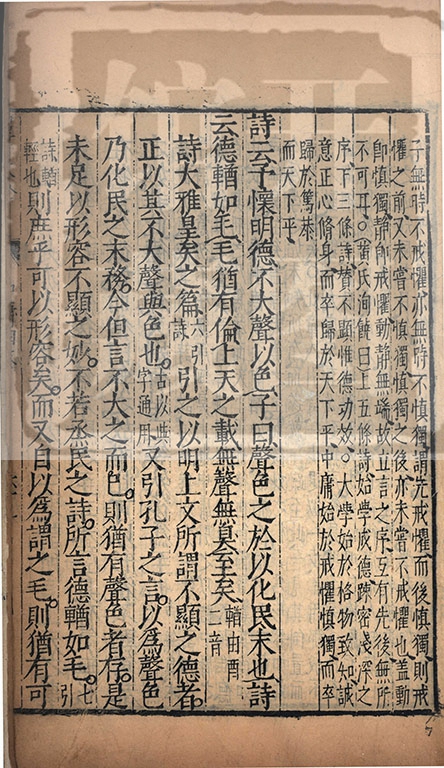 子無時不戒懼亦無時不慎獨謂先戒懼而後慎獨則戒
懼之前又未嘗不慎獨慎獨之後亦未嘗不戒懼也蓋動
即慎獨靜即戒懼動靜無端故立言之序互有先後無所
不可耳○黃氏洵饒曰上五條詩始學成德疎密淺深之
序下三條詩贊不顯惟德功效○大學始於格物致知誠
意正心修身而卒歸於天下平中庸始於戒懼慎獨而卒
歸於篤恭
而天下平
詩云予懷明德不大聲以色子曰聲色之於以化民末也詩
云德輶如毛毛猶有倫上天之載無聲無臭至矣輶由酉二音
詩大雅皇矣之篇六引詩引之以明上文所謂不顯之德者
正以其不大聲與色也古以與字通用又引孔子之言以爲聲色
乃化民之末務今但言不大之而已則猶有聲色者存是
未足以形容不顯之妙不若烝民之詩所言德輶如毛七引
詩輶輕也則庶乎可以形容矣而又自以爲謂之毛則猶有可